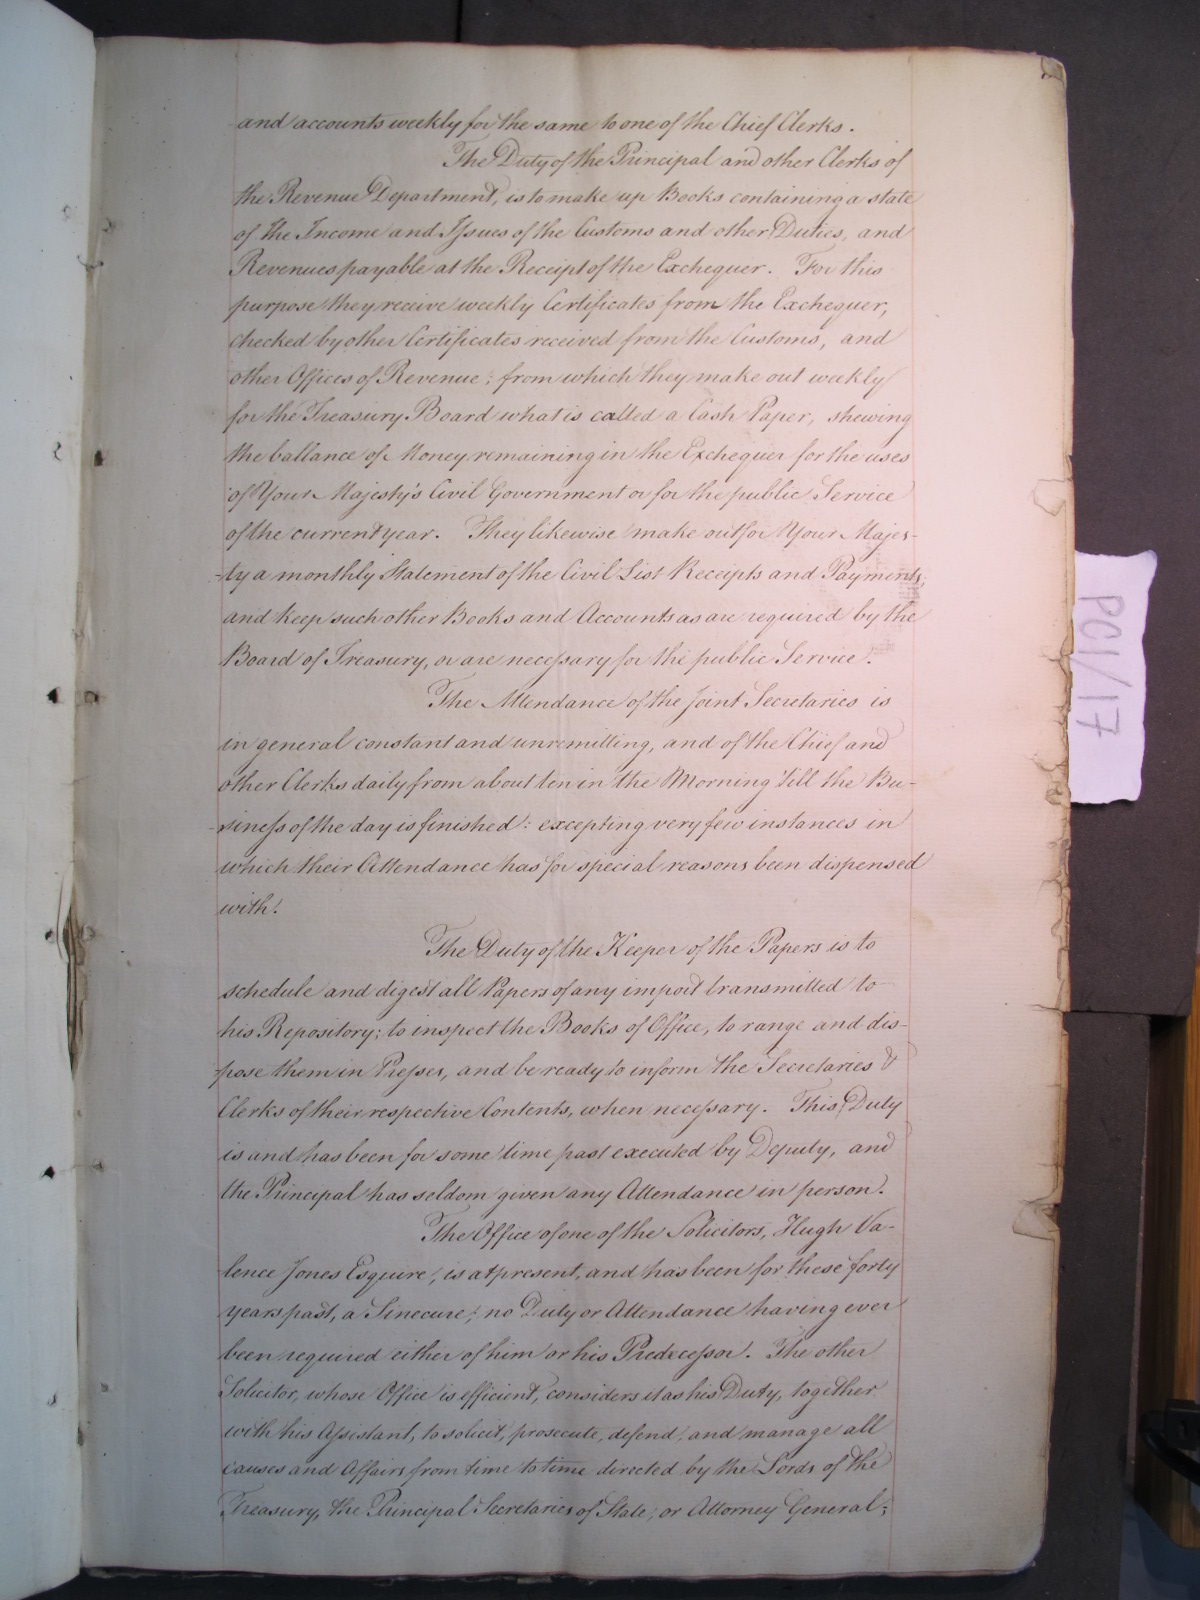 and accounts weekly for the same to one of the Chief Clerks.
The Duty of the Principal and other Clerks of
the Revenue Department, is to make up Books containing a state
of the Income and Issues of the Customs and other Duties, and
Revenues payable at the Receipt of the Exchequer. For this
purpose they receive weekly Certificates from the Exchequer,
checked by other Certificates received from the Customs, and
other Offices of Revenue; from which they make out weekly
for the Treasury Board what is called a Cash Paper, shewing
the ballance of Money remaining in the Exchequer for the uses
of Your Majesty's Civil Government or for the public Service
of the current year. They likewise make out for Your Majes-
-ty a monthly Statement of the Civil List Receipts and Payments,
and keep such other Books and Accounts as are required by the
Board of Treasury, or are necessary for the public Service.
The Attendance of the joint Secretaries is
in general constant and unremitting, and of the Chief and
other Clerks daily from about ten in the Morning 'till the Bu-
-siness of the day is finished: excepting very few instances in
which their Attendance has for special reasons been dispensed
with.
The Duty of the Keeper of the Papers is to
schedule and digest all Papers of any import transmitted to
his Repository; to inspect the Books of Office, to range and dis-
-pose them in Presses, and be ready to inform the Secretaries &
Clerks of their respective Contents, when necessary. This Duty
is and has been for some time past executed by Deputy, and
the Principal has seldom given any Attendance in person.
The Office of one of the Solicitors, Hugh Va-
-lence Jones Esquire, is at present, and has been for these forty
years past, a Sinecure; no Duty or Attendance having ever
been required either of him or his Predecessor. The other
Solicitor, whose Office is efficient, considers it as his Duty, together
with his Assistant, to solicit, prosecute, defend, and manage all
causes and Affairs from time to time directed by the Lords of the
Treasury, the Principal Secretaries of State, or Attorney General;
PC1/17